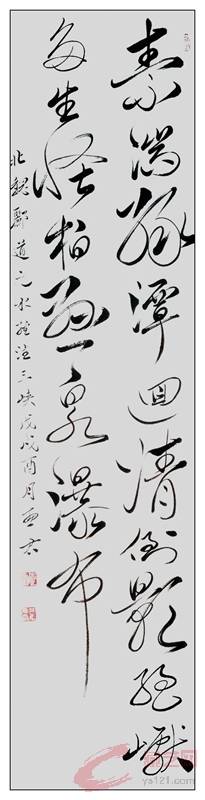 素湍綠潭迴清倒影絕巘
多生怪柏懸泉瀑布
北魏酈道元水經注三峽戊戌酉月
ys121.com